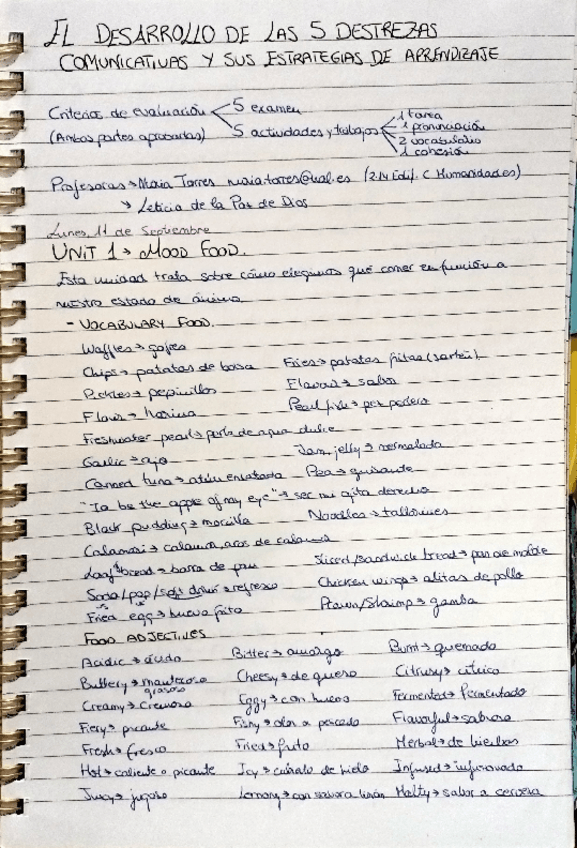 EL DESARROLLO DE LAS 5 DESTREZAS
COMUNICATIVAS Y SUS ESTRATEGIAS DE APRENDIZAJE
Criterios de evaluación 5 examen
(Ambas partes aprobadas) 5 actividades y trabajos 1 tarea
1 pronunciación
2 vocabulario
1 cohesión
Profesoras → Maria Torres (2.14 Edif. C Humanidades)
→ Leticia de la Paz de Dios
Lunes, 11 de Septiembre
UNIT 1 → MOOD FOOD.
Esta unidad trata sobre cómo elegimos qué comer en función a
nuestro estado de ánimo.
- VOCABULARY FOOD.
Waffles → gofres
Chips → patatas de bolsa Fries → patatas fritas (sartén)
Pickles → pepinillos Flavour → sabor
Flour → harina
Freshwater pearl → perla de agua dulce
Garlic → ajo Jam, jelly → mermelada
Canned tuna → atún enlatado Pea → guisante
"To be the apple of my eye" → ser mi ojito derecho
Black pudding → morcilla Noodles → tallarines
Calamari → calamar, aros de calamar
Loaf bread → barra de pan Sliced/sandwich bread → pan de molde
Soda/pop/soft drink → refresco Chicken wings → alitas de pollo
Fried egg → huevo frito Prawn/Shrimp → gamba
FOOD ADJECTIVES
Acidic → ácido Bitter → amargo Burnt → quemado
Buttery → mantecoso Cheesy → de queso Citrusy → cítrico
grasoso
Creamy → Cremoso Eggy → con huevo Fermented → Fermentado
Fiery → picante Fishy → olor a pescado Flavourful → sabroso
Fresh → fresco Fried → frito Herbal → de hierbas
Hot → caliente o picante Icy → cúbralo de hielo Infused → infusionado
Juicy → jugoso Lemony → con sabor a limón Malty → sabor a cerveza